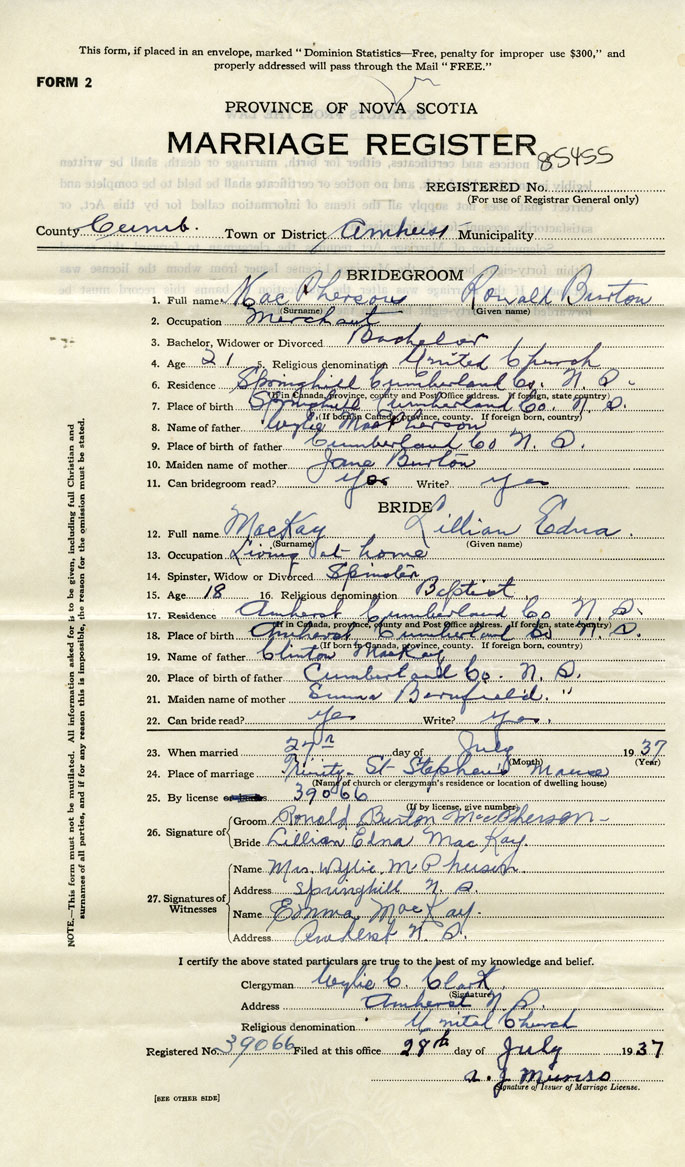 This form, if placed in an envelope, marked "Dominion Statistics—Free, penalty for improper use $300," and
properly addressed will pass through the Mail "FREE."
FORM 2
PROVINCE OF NOVA SCOTIA
MARRIAGE REGISTER
85455
REGISTERED No.
(For use of Registrar General only)
County Cumb. Town or District Amherst Municipality
BRIDEGROOM
1. Full name MacPherson Ronald Burton
(Surname) (Given name)
2. Occupation Merchant
3. Bachelor, Widower or Divorced Bachelor
4. Age 21 5. Religious denomination United Church
6. Residence Springhill Cumberland Co. N. S.
(If in Canada, province, county and Post Office address. If foreign, state country)
7. Place of birth Springhill Cumberland Co. N. S.
(If born in Canada, province, county. If foreign born, country)
8. Name of father Wylie MacPherson
9. Place of birth of father Cumberland Co N. S.
10. Maiden name of mother Jane Burton
11. Can bridegroom read? Yes Write? Yes
BRIDE
12. Full name MacKay Lillian Edna.
(Surname) (Given name)
13. Occupation Living at home
14. Spinster, Widow or Divorced Spinster
15. Age 18 16. Religious denomination Baptist
17. Residence Amherst Cumberland Co N. S.
(If in Canada, province, county and Post Office address. If foreign, state country)
18. Place of birth Amherst Cumberland Co N. S.
(If born in Canada, province, county. If foreign born, country)
19. Name of father Clinton MacKay
20. Place of birth of father Cumberland Co. N. S.
21. Maiden name of mother Emma "
22. Can bride read? Yes Write? Yes.
23. When married 27th day of July 1937
(Month) (Year)
24. Place of marriage Trinity - St Stephens Manse
(Name of church or clergyman's residence or location of dwelling house)
25. By license 39066
(If by license, give number)
26. Signature of
Groom Ronald Burton MacPherson
Bride Lillian Edna MacKay.
27. Signatures of Witnesses
Name Mrs. Wylie McPherson.
Address Springhill N. S.
Name Emma MacKay.
Address Amherst N. S.
I certify the above stated particulars are true to the best of my knowledge and belief.
Clergyman Wylie C. Clark
(Signature)
Address Amherst N. S.
Religious denomination United Church
Registered No. 39066 Filed at this office 28th day of July 1937
A. J. Munro
Signature of Issuer of Marriage License.
[SEE OTHER SIDE]
NOTE.—This form must not be mutilated. All information asked for is to be given, including full Christian and
surnames of all parties, and if for any reason this is impossible, the reason for the omission must be stated.